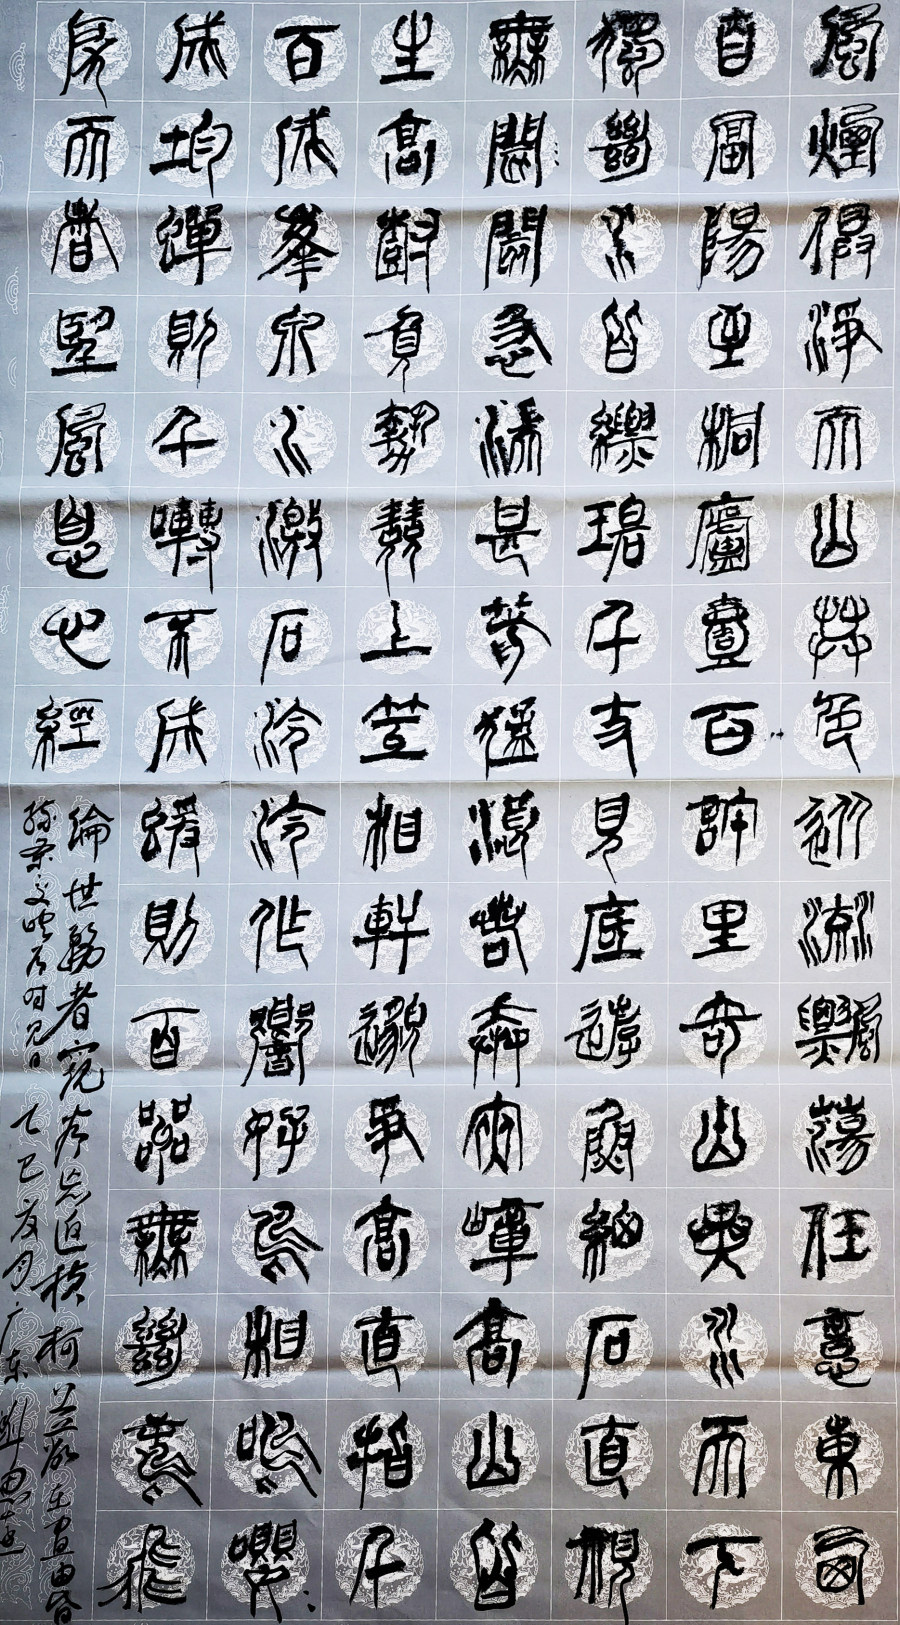 風煙俱淨天山共色從流飄蕩任意東西
自富陽至桐廬壹百許里奇山異水天下
獨絕水皆縹碧千丈見底游魚細石直視
無閡閡急湍甚箭猛浪若奔夾嶂高山皆
生高樹負勢競上互相軒邈爭高直指千
百成峯泉水激石泠泠作響好鳥相鳴嚶
成均蟬則千囀不成蝯則百叫無絕鳶飛
戾天者望風息心經
綸世務者窺谷忘返橫柯上蔽在晝由昏
疏條交映有时見日 乙巳夏月广东